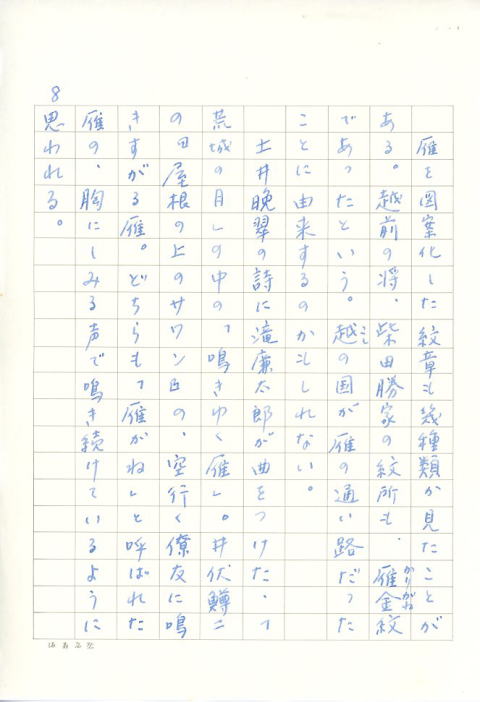 雁を図案化した紋章も幾種類か見たことが
ある。越前の将、柴田勝家の紋所も、雁金紋
かりがね
であったという。越の国が雁の通い路だった
こし
ことに由来するのかもしれない。
土井晩翠の詩に滝廉太郎が曲をつけた、「
荒城の月」の中の、「鳴きゆく雁」。井伏鱒二
の『屋根の上のサワン』の、空行く僚友に鳴
きすがる雁。どちらも「雁がね」と呼ばれた
雁の、胸にしみる声で鳴き続けているように
思われる。
8